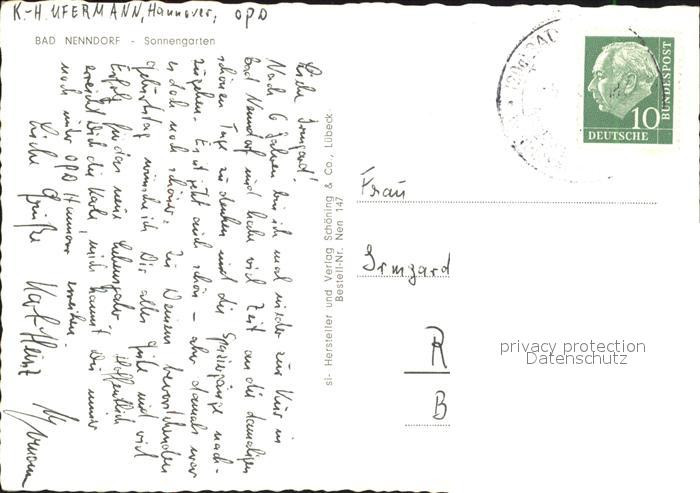 K.-H. UFERMANN, Hannover, OPD
BAD NENNDORF - Sonnengarten
Liebe Irmgard!
Nach 6 Jahren bin ich mal wieder zur Kur in
Bad Nenndorf und habe viel Zeit an die damaligen
schönen Tage zu denken und die Spaziergänge nach-
zugehen. Es ist jetzt auch schön - aber damals war
es doch noch schöner. Zu Deinem bevorstehenden
Geburtstag wünsche ich Dir alles Gute und viel
Erfolg für das neue Lebensjahr. Hoffentlich
erreicht Dich die Karte, mich kannst Du immer
noch unter OPD Hannover erreichen.
Liebe Grüße Karl-Heinz
Ufermann
si- Hersteller und Verlag Schöning & Co., Lübeck
Bestell-Nr. Nen 147
BUNDESPOST
10
DEUTSCHE
Frau
Irmgard
R
B
privacy protection
Datenschutz